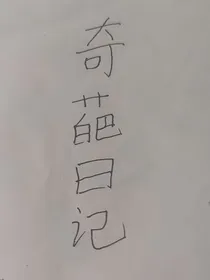 奇葩日记